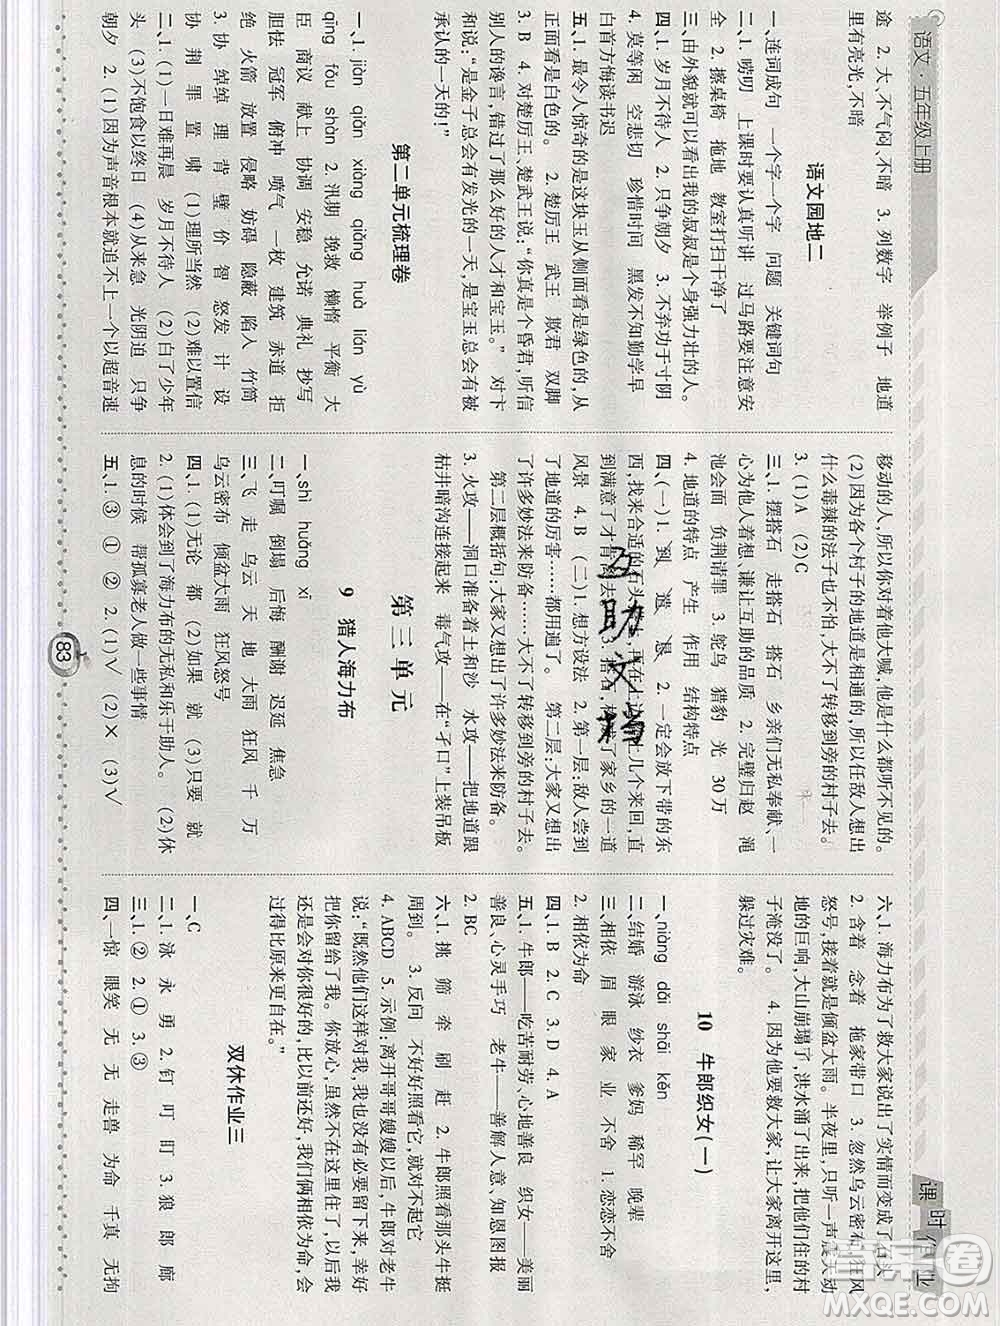 语文·五年级上册
途 2. 大、不气闷、不暗 3. 列数字 举例子 地道
里有亮光,不暗
语文园地二
一、连词成句 一个字一个字 问题 关键词句
二、1. 唠叨 上课时要认真听讲 过马路要注意安
全 2. 擦桌椅 拖地 教室打扫干净了
三、由外貌就可以看出我的叔叔是个身强力壮的人。
四、1. 岁月不待人 2. 只争朝夕 3. 不弃功于寸阴
4. 莫等闲 空悲切 珍惜时间 黑发不知勤学早
白首方悔读书迟
五、1. 最令人惊奇的是这块玉从侧面看是绿色的,从
正面看是白色的。 2. 楚厉王 武王 欺君 双脚
3. B 4. 对楚厉王、楚武王说:“你真是个昏君,听信
别人的谗言,错过了那么好的人才和宝玉。” 对卞
和说:“是金子总会有发光的一天,是宝玉总会有被
承认的一天的!”
第二单元梳理卷
一、1. jiàn qiǎn xiàng qiǎng huà lián yù
qǐng fǒu shàn 2. 汛期 挽救 懒惰 平衡 大
臣 商议 献上 协调 安稳 允诺 典礼 抄写
胆怯 冠军 俯冲 喷气 一枚 建筑 赤道 拒
绝 火箭 放置 侵略 妨碍 隐蔽 陷入 竹筒
3. 协 绰 璧 价 智 怒发 计 设
协 荆 罪 置 啸 (1)理所当然 (2)难以置信
二、1. (1)一日难再晨 岁月不待人 (2)白了少年
头 (3)不饱食以终日 (4)从来急 光阴迫 只争
朝夕 2. (1)因为声音根本就追不上一个以超音速
移动的人,所以你对着他大喊,他是什么都听不见的。
(2)因为各个村子的地道是相通的,所以任敌人想出
什么毒辣的法子也不怕,大不了转移到旁的村子去。
3. (1)A (2)C
三、1. 摆搭石 走搭石 搭石 乡亲们无私奉献、一
心为他人着想、谦让互助的品质 2. 完璧归赵 渑
池会面 负荆请罪 3. 鸵鸟 猎豹 光 30万
4. 地道的特点 产生 作用 结构特点
风景 4. B (二)1. 想方设法 2. 第一层:敌人尝到
了地道的厉害……都用遍了。 第二层:大家又想出
了许多妙法来防备……大不了转移到旁的村子去。
第二层概括句:大家又想出了许多妙法来防备。
3. 火攻——洞口准备着土和沙 水攻——把地道跟
枯井暗沟连接起来 毒气攻——在“孑口”上装吊板
第三单元
9 猎人海力布
一、shì huǎng xī
二、叮嘱 倒塌 后悔 酬谢 迟延 焦急
三、飞 走 乌云 天 地 大雨 狂风 千 万
乌云密布 倾盆大雨 狂风怒号
四、1. (1)无论 都 (2)如果 就 (3)只要 就
2. (1)体会到了海力布的无私和乐于助人。 (2)休
息的时候 帮孤寡老人做一些事情
五、1. ③ ① ② 2. (1)√ (2)× (3)√
六、1. 海力布为了救大家说出了实情而变成了石头
2. 含着 念着 拖家带口 3. 忽然乌云密布、狂风
怒号,接着就是倾盆大雨。半夜里,只听一声震天动
地的巨响,大山崩塌了,洪水涌了出来,把他们住的村
子淹没了。 4. 因为他要救大家,让大家离开这里,
躲过灾难。
10 牛郎织女(一)
一、niàng dǎi shāi kěn
二、结婚 游泳 纱衣 爹妈 稀罕 晚辈
三、相依 眉 眼 家 业 不舍 1. 恋恋不舍
2. 相依为命
四、1. B 2. C 3. D 4. A
五、1. 牛郎——吃苦耐劳、心地善良 织女——美丽
善良、心灵手巧 老牛——善解人意、知恩图报
2. BC
六、1. 挑 筛 牵 刷 赶 2. 牛郎照看那头牛挺
周到。 3. 反问 不好好照看它,就对不起它
4. ABCD 5. 示例:离开哥哥嫂嫂以后,牛郎对老牛
说:“既然他们这样对我,我也没有留下来的必要了。
把你留给了我。你放心,虽然不在这里住了,以后我
还是会对你很好的,比以前还好,我们俩相依为命,
过得比原来更自在。”
双休作业三
一、C
二、1. 泳 永 勇 2. 钉 叮 盯 3. 狼 郎 廊
三、1. ② 2. ① 3. ③
四、一惊 眼笑 无 无 走兽 为命 千真 无拘
83
课时作业
互助文档
答案圈
MXQE.COM